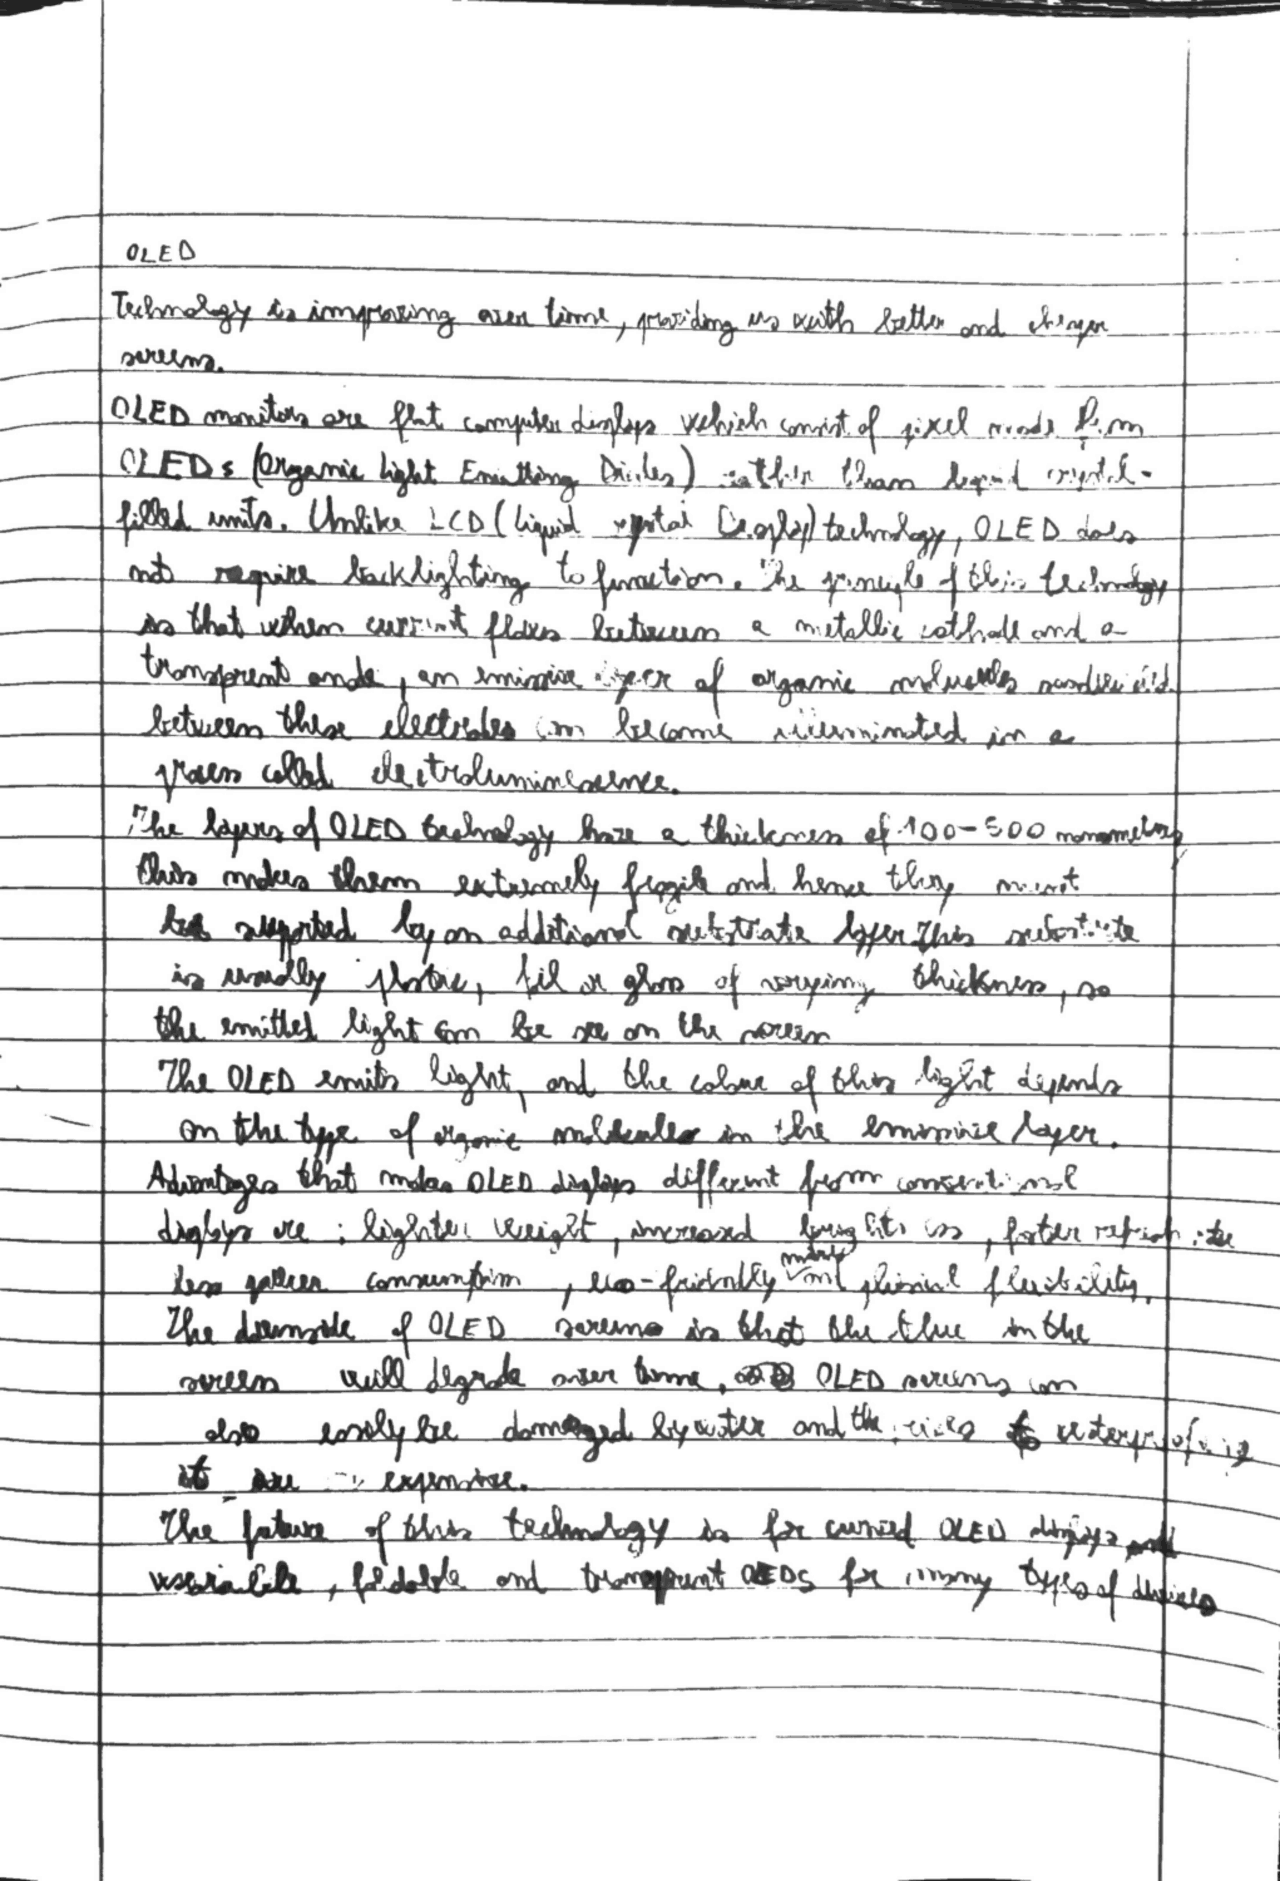 OLED
Technology is improving over time, providing us with better and cheaper
screens.
OLED monitors are flat computer displays which consist of pixel made from
OLEDs (Organic Light Emitting Diodes) rather than liquid crystal-
filled units. Unlike LCD (Liquid crystal Display) technology, OLED does
not require backlighting to function. The principle of this technology
is that when current flows between a metallic cathode and a
transparent anode, an emissive layer of organic molecules sandwiched
between these electrodes can become illuminated in a
process called electroluminescence.
The layers of OLED technology have a thickness of 100-500 nanometres
this makes them extremely fragile and hence they must
be supported by an additional substrate layer. This substrate
is usually plastic, foil or glass of varying thickness, so
the emitted light can be see on the screen
The OLED emits light, and the colour of this light depends
on the type of organic molecules in the emissive layer.
Advantages that makes OLED displays different from conventional
displays are : lighter weight, increased brightness, faster refresh rate
less power consumption, eco-friendly and physical flexibility.
The downside of OLED screens is that the blue in the
screen will degrade over time. OLED screens can
also easily be damaged by water and the to waterproofing
it are expensive.
The future of this technology is for curved OLED displays and
wearable, foldable and transparent OLEDS for many types of devices